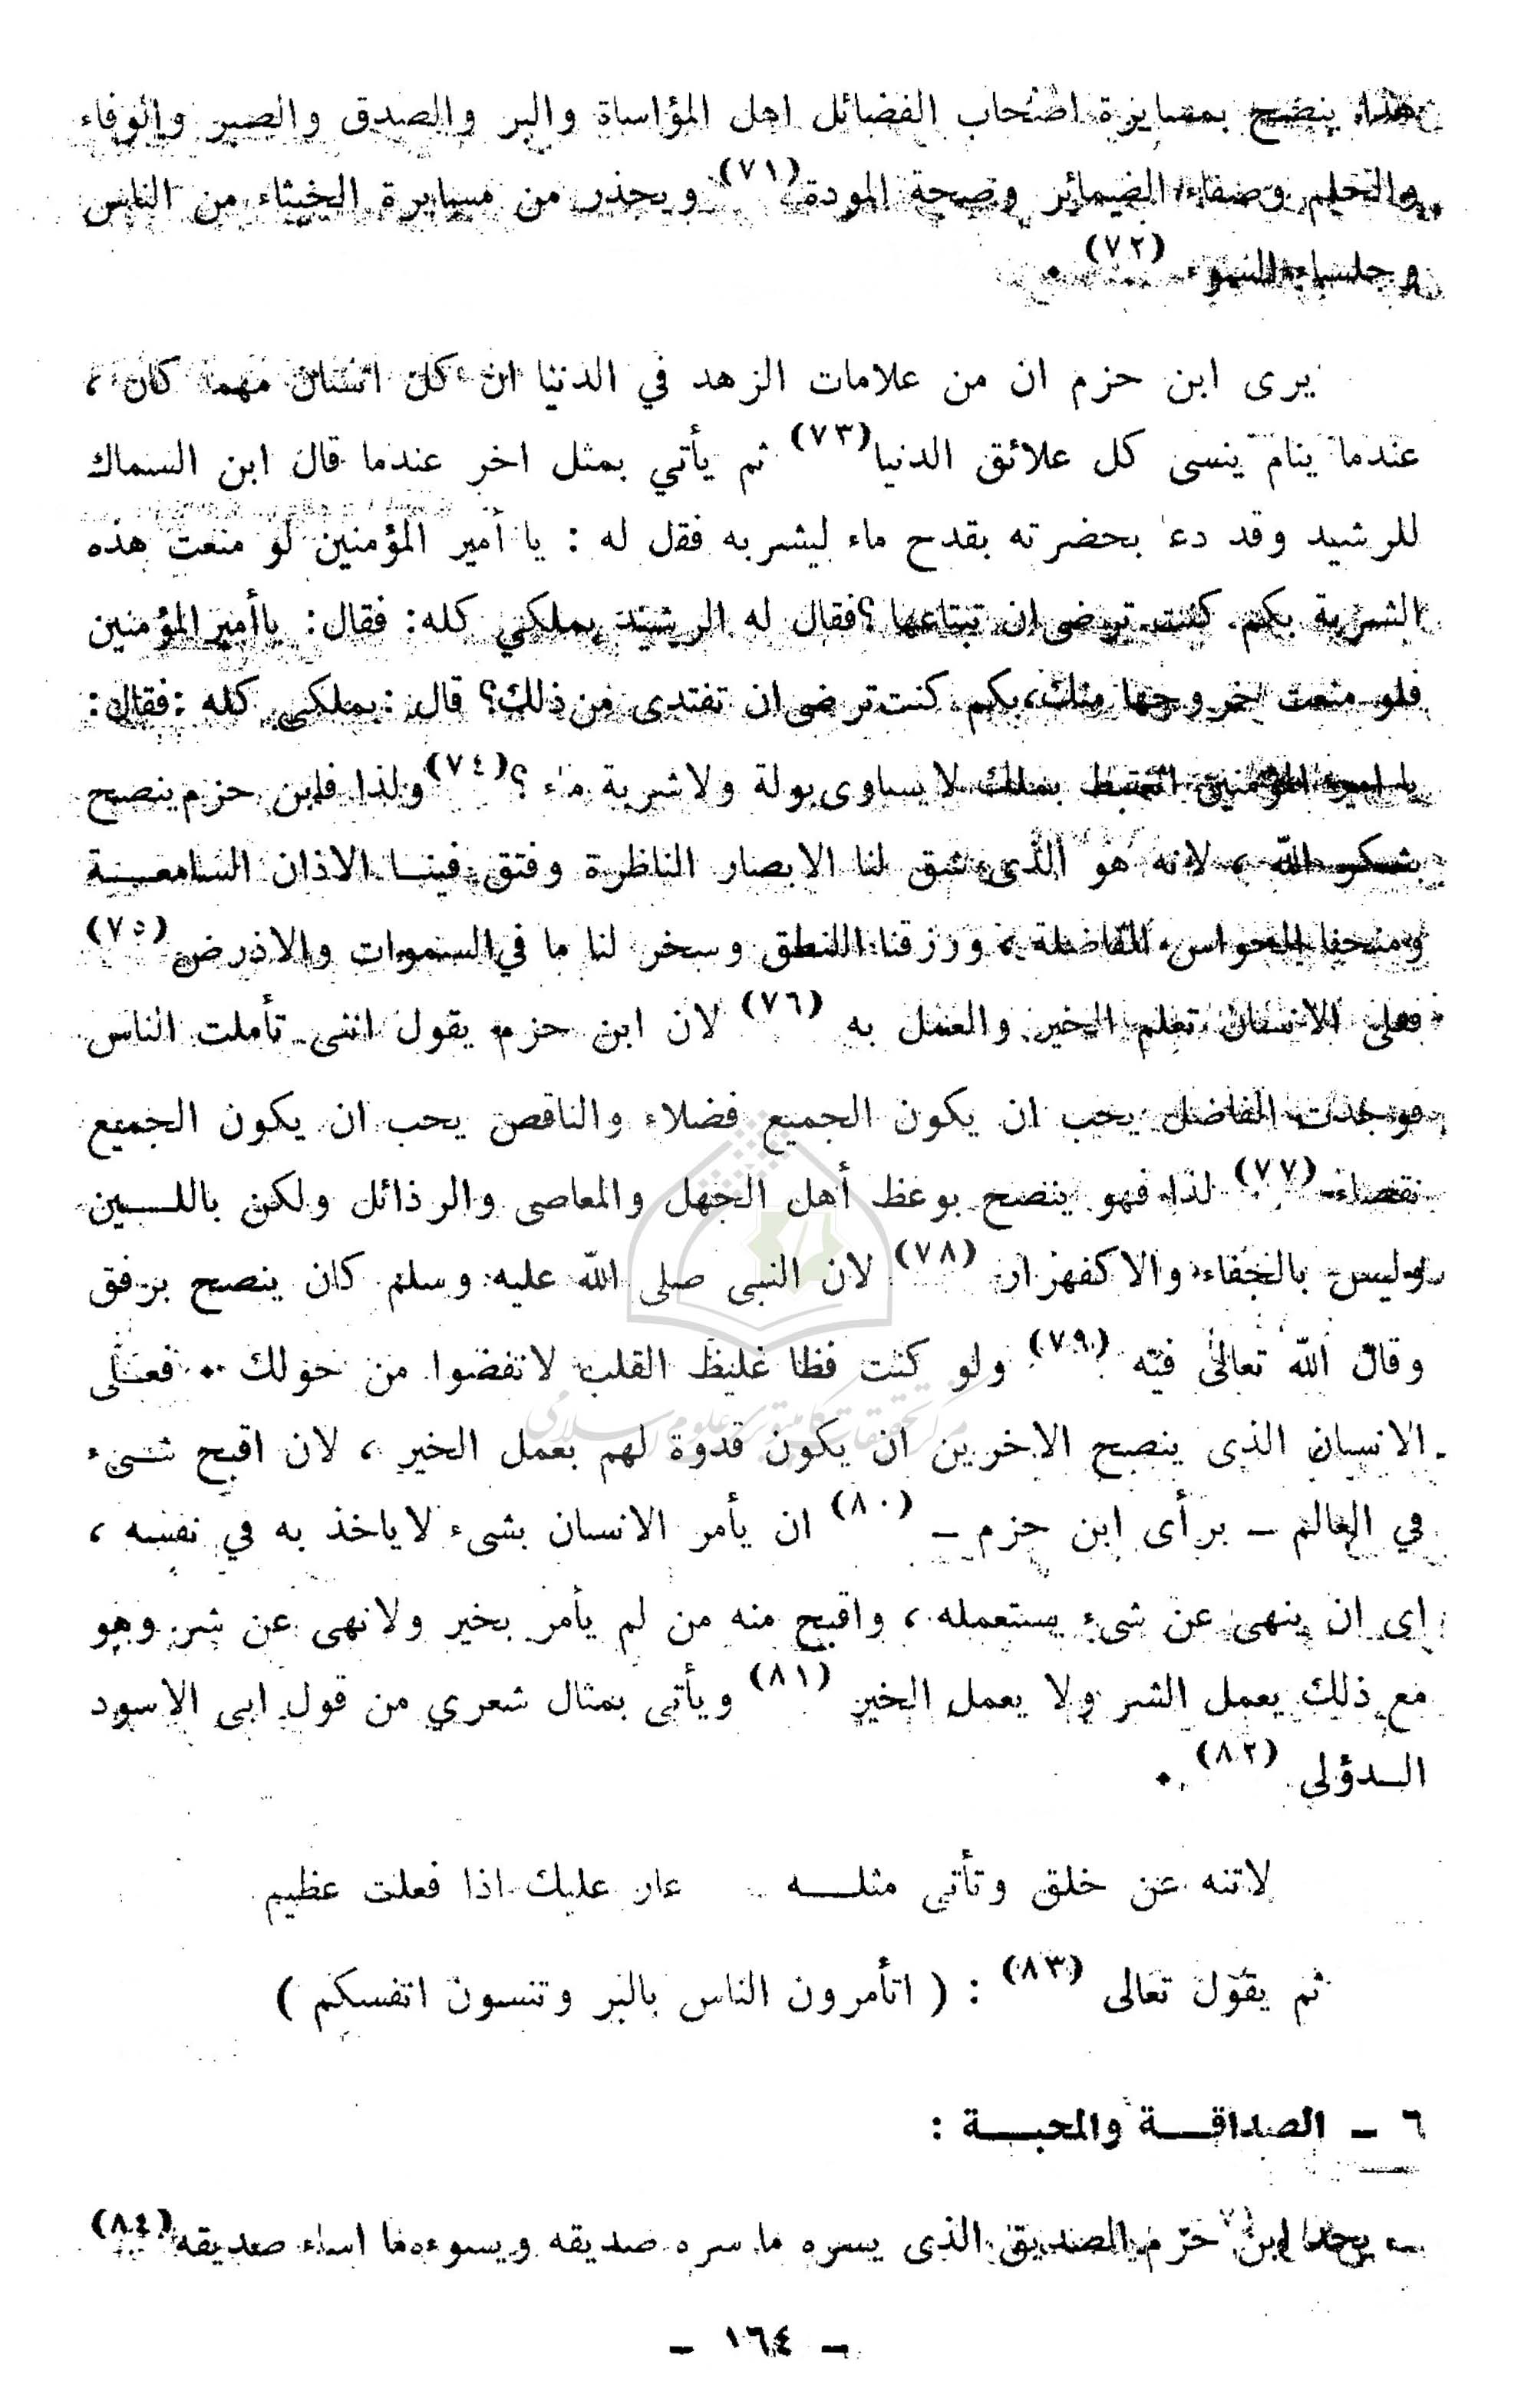 هذا ينصح بمسايرة اصحاب الفضائل اهل المؤاساة والبر والصدق والصبر والوفاء
والحلم وصفاء الضمائر وصحة المودة (٧١) ويحذر من مسايرة الخبثاء من الناس
وجلساء السوء (٧٢) ٠
يرى ابن حزم ان من علامات الزهد في الدنيا ان كل انسان مهما كان ،
عندما ينام ينسى كل علائق الدنيا (٧٣) ثم يأتي بمثل اخر عندما قال ابن السماك
للرشيد وقد دعا بحضرته بقدح ماء ليشربه فقل له : يا أمير المؤمنين لو منعت هذه
الشربة بكم كنت ترضى ان تبتاعها ؟ فقال له الرشيد بملكي كله: فقال: يا أمير المؤمنين
فلو منعت خروجها منك، بكم كنت ترضى ان تفتدى من ذلك؟ قال : بملكي كله : فقال:
يا امير المؤمنين اتغتبط بملك لا يساوى بولة ولا شربة ماء ؟ (٧٤) ولذا فابن حزم ينصح
بشكر الله ، لانه هو الذى شق لنا الابصار الناظرة وفتق فينا الاذان السامعة
ومنحنا الحواس الفاضلة ، ورزقنا النطق وسخر لنا ما في السموات والاذرض (٧٥)
فعلى الانسان تعلم الخير والعمل به (٧٦) لان ابن حزم يقول اننى تأملت الناس
فوجدت الفاضل يحب ان يكون الجميع فضلاء والناقص يحب ان يكون الجميع
نقصاء (٧٧) لذا فهو ينصح بوعظ أهل الجهل والمعاصى والرذائل ولكن باللين
وليس بالجفاء والاكفهرار (٧٨) لان النبى صلى الله عليه وسلم كان ينصح برفق
وقال الله تعالى فيه (٧٩) ولو كنت فظا غليظ القلب لانفضوا من حولك ٠٠ فعلى
الانسان الذى ينصح الاخرين ان يكون قدوة لهم بعمل الخير ، لان اقبح شىء
في العالم – برأى ابن حزم – (٨٠) ان يأمر الانسان بشىء لا ياخذ به في نفسه ،
اى ان ينهى عن شىء يستعمله ، واقبح منه من لم يأمر بخير ولا نهى عن شر وهو
مع ذلك يعمل الشر ولا يعمل الخير (٨١) ويأتى بمثال شعري من قول ابى الاسود
الدؤلى (٨٢) ٠
لاتنه عن خلق وتأتى مثله عار عليك اذا فعلت عظيم
ثم يقول تعالى (٨٣) : ( اتأمرون الناس بالبر وتنسون انفسكم )
٦ – الصداقة والمحبة :
– يحدد ابن حزم الصديق الذى يسره ما سره صديقه ويسوءه ما اساء صديقه (٨٤)
– ١٦٤ –
مركز تحقيقات كامپيوترى علوم اسلامى